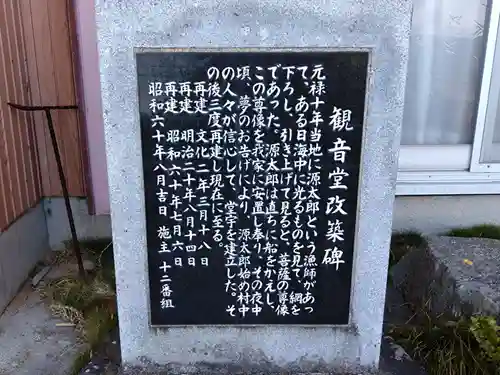 観音堂改築碑
元禄十年当地に源太郎という漁師があっ
て、ある日海中に光るものを見つけ、網を
下ろし、引き上げて見ると、菩薩の尊像
であった。源太郎は直ちに船をかえし、
この尊像を我家に安置し奉り、その夜中
頃、夢のお告げにより、源太郎始め村中
の人々が信心して、堂宇を建立した。そ
の後三度再建し現在に至る。
再建 文化二年三月十八日
再建 明治二十年八月十四日
再建 昭和六十年七月六日
昭和六十年八月吉日 施主 十二番組